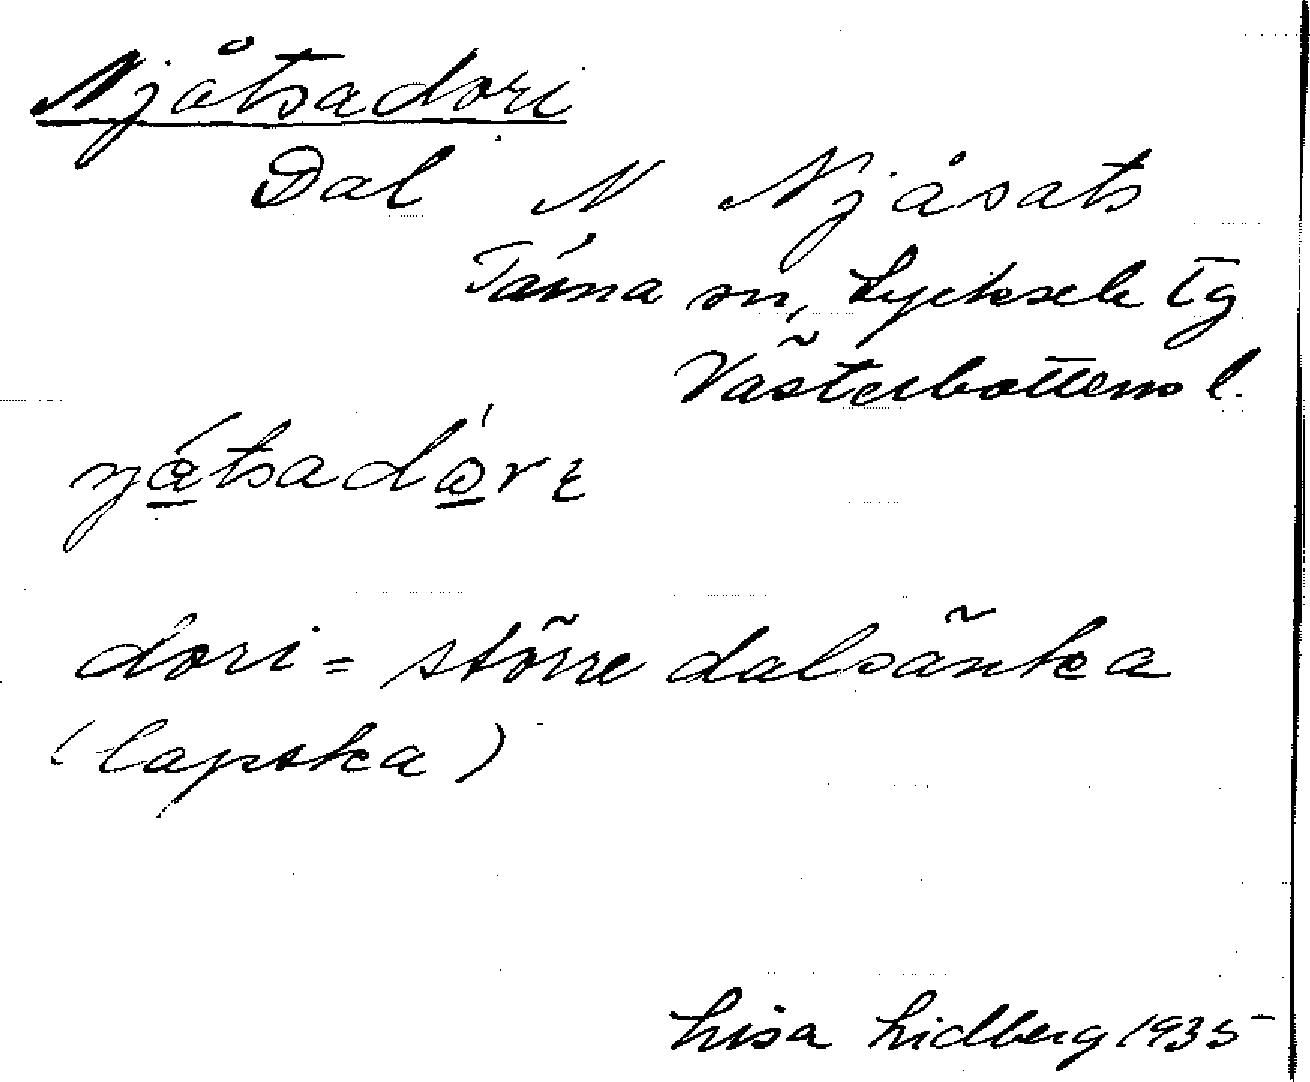 Njåtsadori
Dal N Njåsats
Tärna sn, Lycksele tg
Västerbottens l.
dori = större dalsänka
(lapska)
Lisa Lidberg 1935